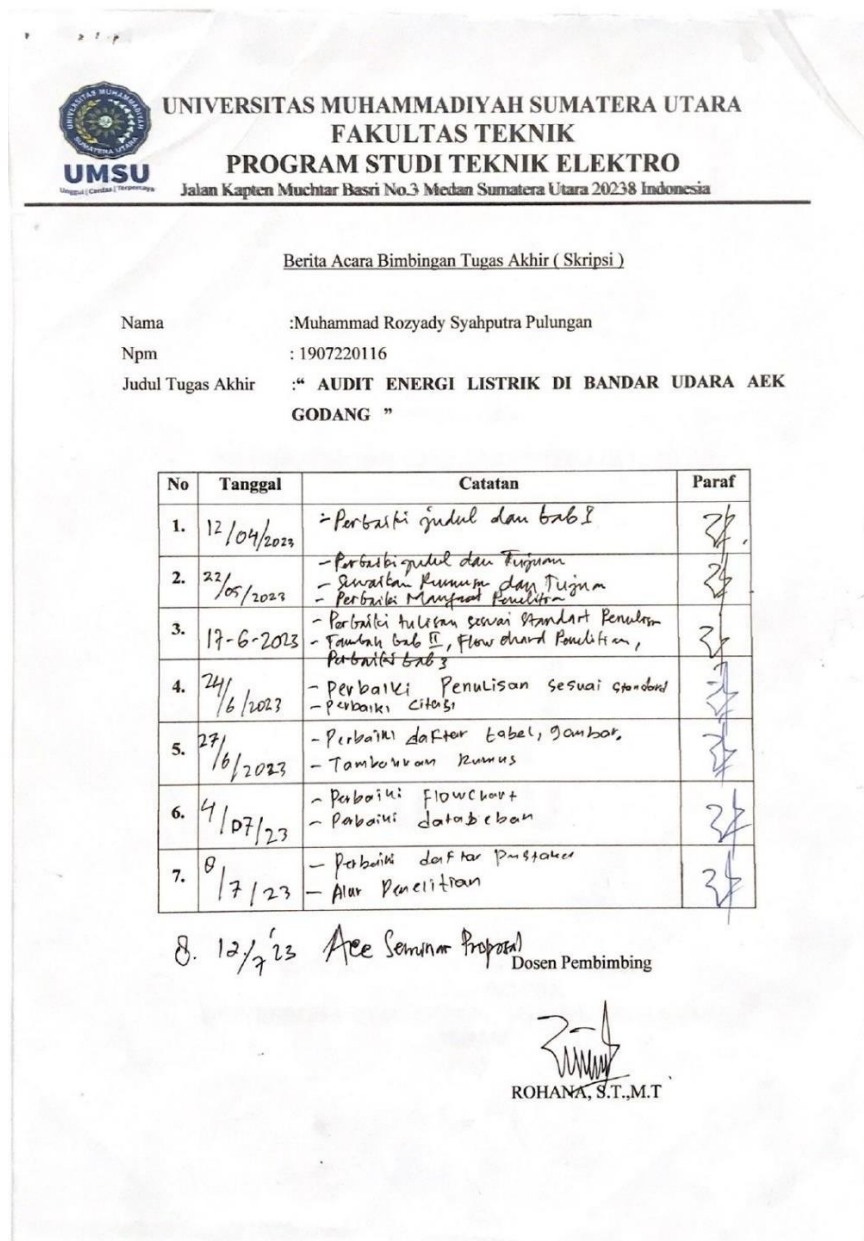 UNIVERSITAS MUHAMMADIYAH SUMATERA UTARA
FAKULTAS TEKNIK
PROGRAM STUDI TEKNIK ELEKTRO
UMSU
Unggul | Cerdas | Terpercaya
Jalan Kapten Muchtar Basri No.3 Medan Sumatera Utara 20238 Indonesia
Berita Acara Bimbingan Tugas Akhir ( Skripsi )
Nama :Muhammad Rozyady Syahputra Pulungan
Npm : 1907220116
Judul Tugas Akhir :“ AUDIT ENERGI LISTRIK DI BANDAR UDARA AEK
GODANG ”
No Tanggal Catatan Paraf
1. 12/04/2023 - Perbaiki judul dan bab I
2. 22/05/2023 - Perbaiki judul dan Tujuan
- dan Tujuan
- Perbaiki Manfaat Penelitian
3. 17-6-2023 - Perbaiki tulisan sesuai Standart Penulisan
- Tambah bab II, Flow chard Penelitian,
Perbaiki bab 3
4. 24/6/2023 - Perbaiki Penulisan sesuai standard
- Perbaiki citasi
5. 27/6/2023 - Perbaiki daftar tabel, gambar.
- Tambahkan Rumus
6. 4/07/23 - Perbaiki Flowchart
- Perbaiki data beban
7. 8/7/23 - Perbaiki daftar Pustaka
- Alur Penelitian
8. 12/7'23 Acc Seminar Proposal
Dosen Pembimbing
ROHANA, S.T.,M.T